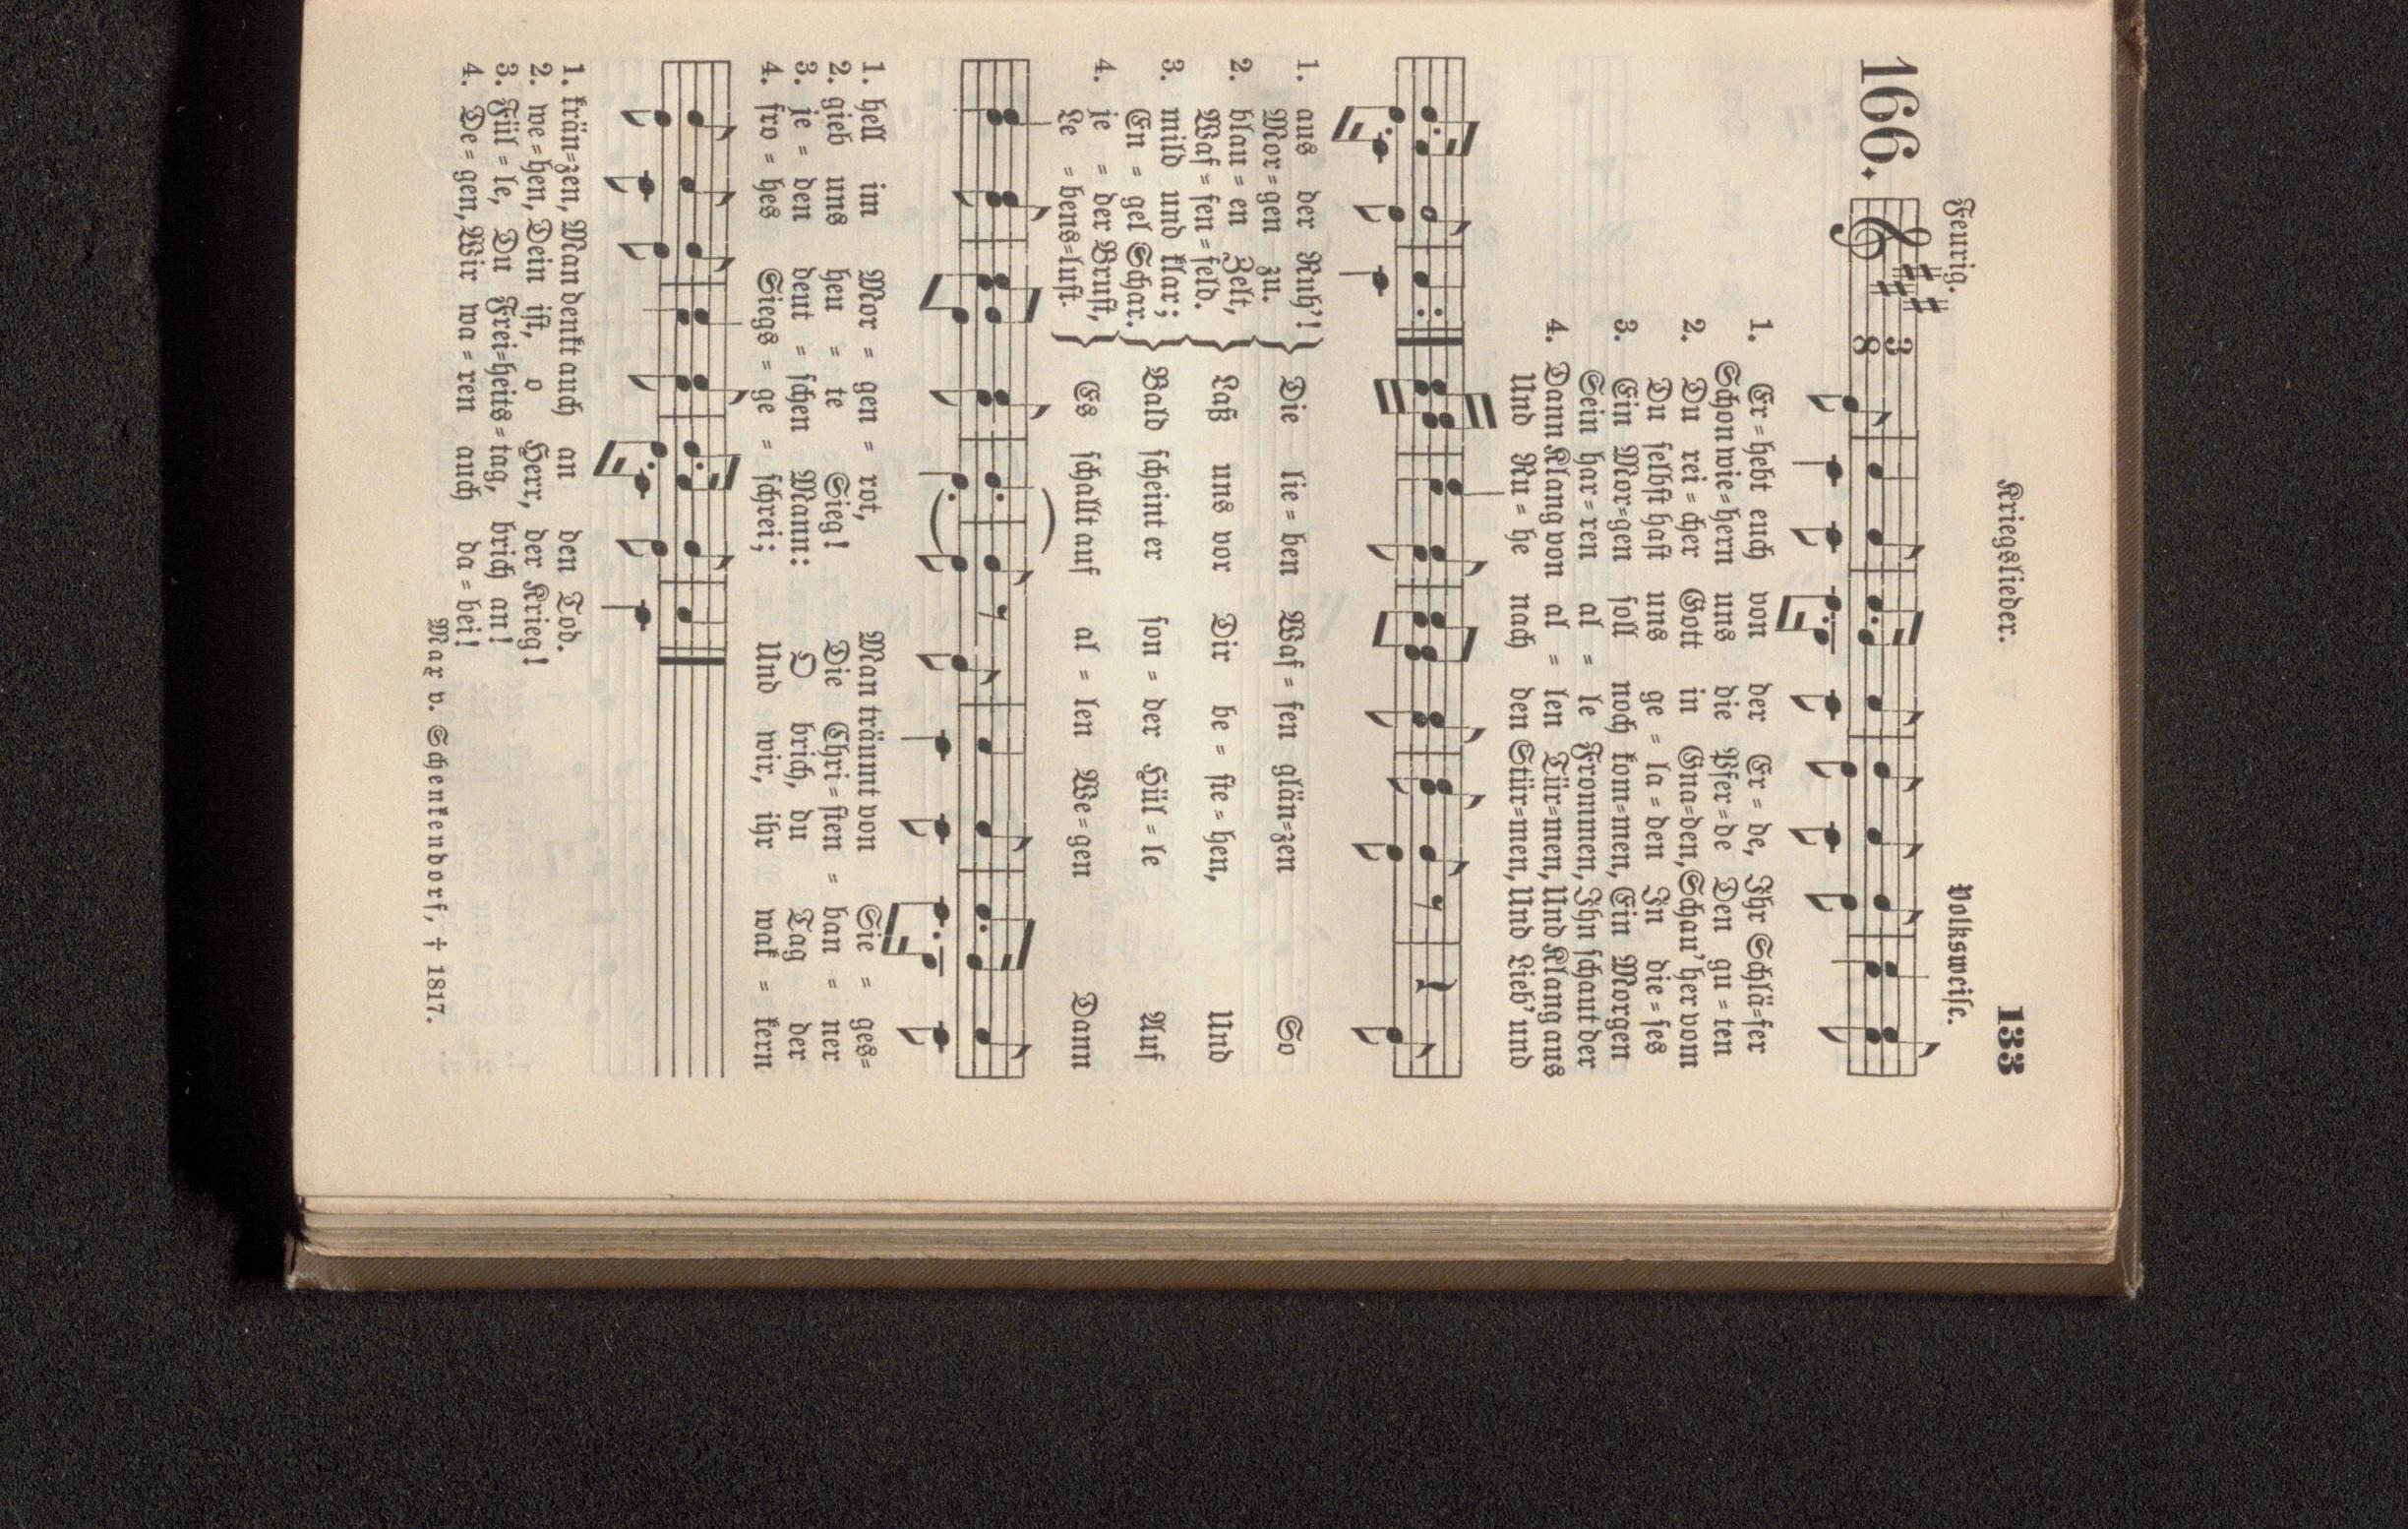 Kriegslieder. 133
Feurig. Volksweise.
166.
3
8
1. Er = hebt euch von der Er = de, Ihr Schlä=fer
Schon wie=hern uns die Pfer=de Den gu = ten
2. Du rei = cher Gott in Gna=den, Schau' her vom
Du selbst hast uns ge = la = den In die = ses
3. Ein Mor=gen soll noch kom=men, Ein Morgen
Sein har = ren al = le Frommen, Ihn schaut der
4. Dann Klang von al = len Tür=men, Und Klang aus
Und Ru = he nach den Stür=men, Und Lieb' und
1. aus der Ruh'! } Die lie = ben Waf = fen glän=zen So
Mor=gen zu.
2. blau = en Zelt, } Laß uns vor Dir be = ste = hen, Und
Waf = fen=feld.
3. mild und klar; } Bald scheint er son = der Hül = le Auf
En = gel Schar.
4. je = der Brust, } Es schallt auf al = len We=gen Dann
Le = bens=lust.
1. hell im Mor = gen = rot, Man träumt von Sie = ges=
2. gieb uns heu = te Sieg! Die Chri = sten = ban = ner
3. je = den deut = schen Mann: O brich, du Tag der
4. fro = hes Siegs = ge = schrei; Und wir, ihr wak = kern
1. krän=zen, Man denkt auch an den Tod.
2. we = hen, Dein ist, o Herr, der Krieg!
3. Fül = le, Du Frei=heits = tag, brich an!
4. De = gen, Wir wa = ren auch da = bei!
Max v. Schenkendorf, † 1817.